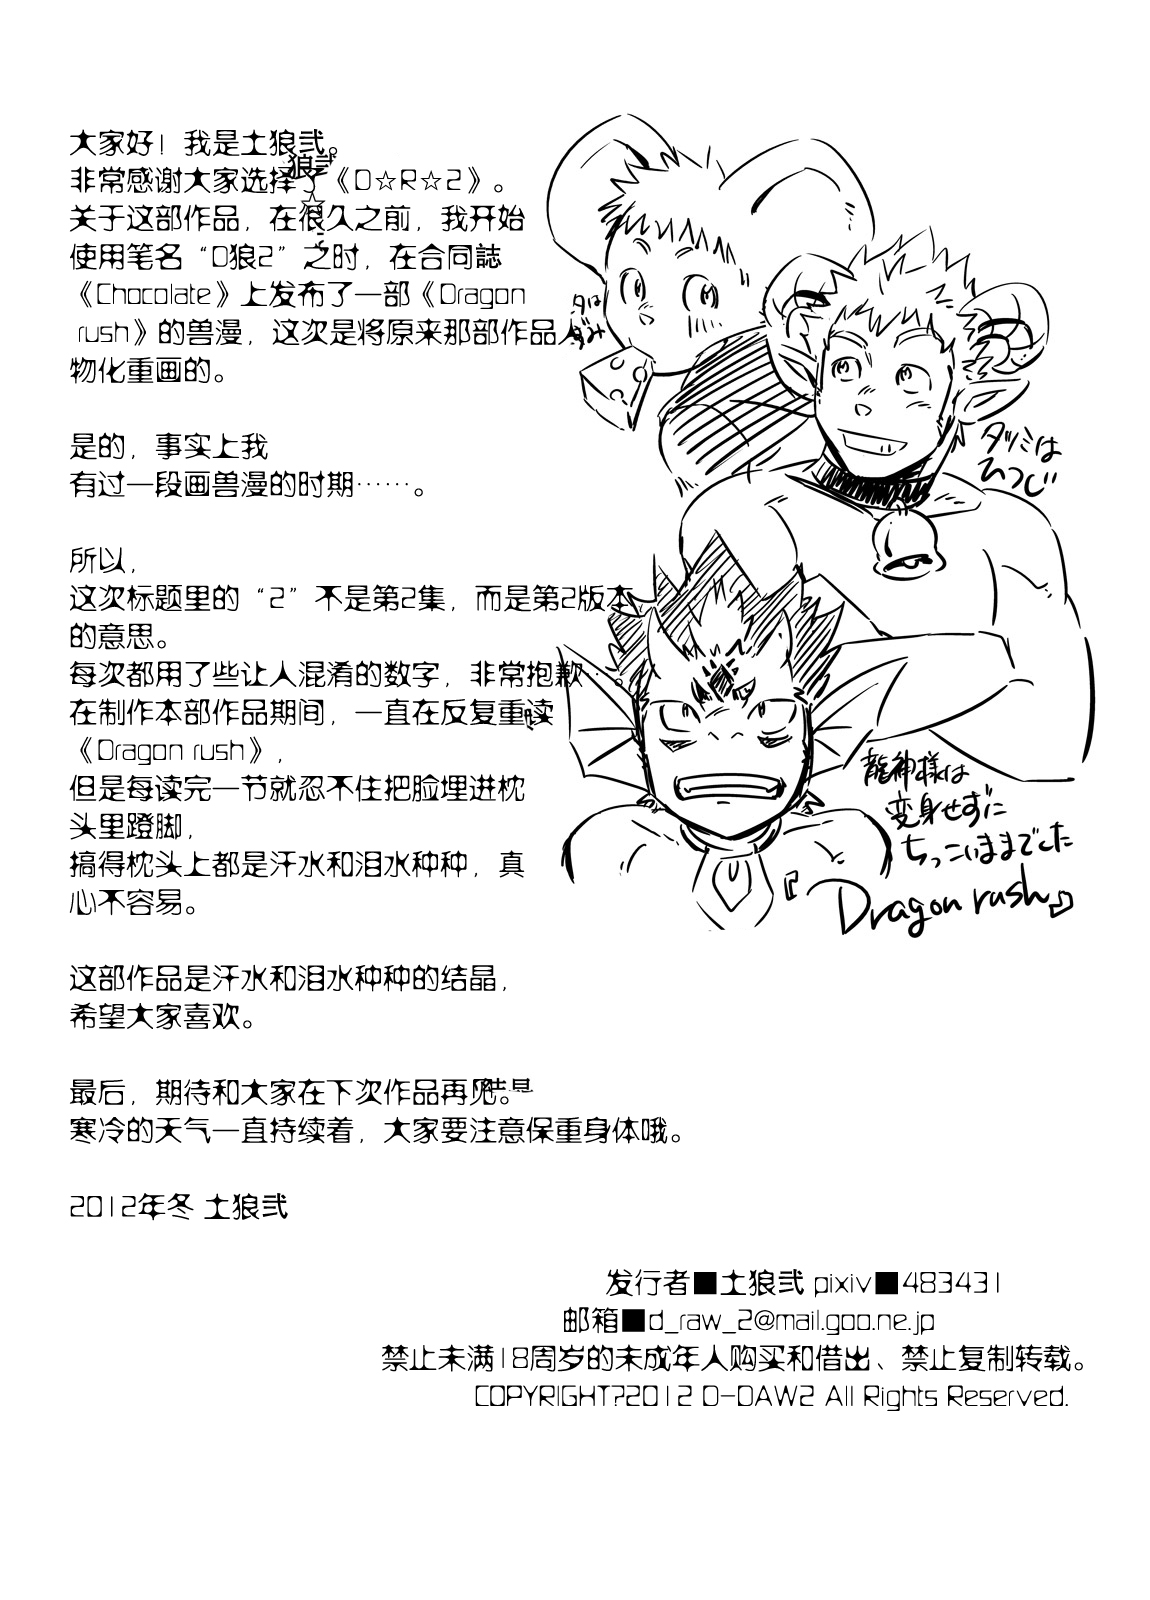 大家好！我是土狼弐。
非常感谢大家选择了《D☆R☆2》。
关于这部作品，在很久之前，我开始
使用笔名“D狼2”之时，在合同誌
《Chocolate》上发布了一部《Dragon
rush》的兽漫，这次是将原来那部作品人
物化重画的。
是的，事实上我
有过一段画兽漫的时期……。
所以，
这次标题里的“2”不是第2集，而是第2版本
的意思。
每次都用了些让人混淆的数字，非常抱歉…。
在制作本部作品期间，一直在反复重读
《Dragon rush》，
但是每读完一节就忍不住把脸埋进枕
头里蹬脚，
搞得枕头上都是汗水和泪水种种，真
心不容易。
这部作品是汗水和泪水种种的结晶，
希望大家喜欢。
最后，期待和大家在下次作品再见。
寒冷的天气一直持续着，大家要注意保重身体哦。
2012年冬 土狼弐
タツミは
ひつじ
龍神様は
変身せずに
ちっこいままでした
Dragon rush
发行者■土狼弐 pixiv■483431
邮箱■d_raw_2@mail.goo.ne.jp
禁止未满18周岁的未成年人购买和借出、禁止复制转载。
COPYRIGHT?2012 D-DAW2 All Rights Reserved.